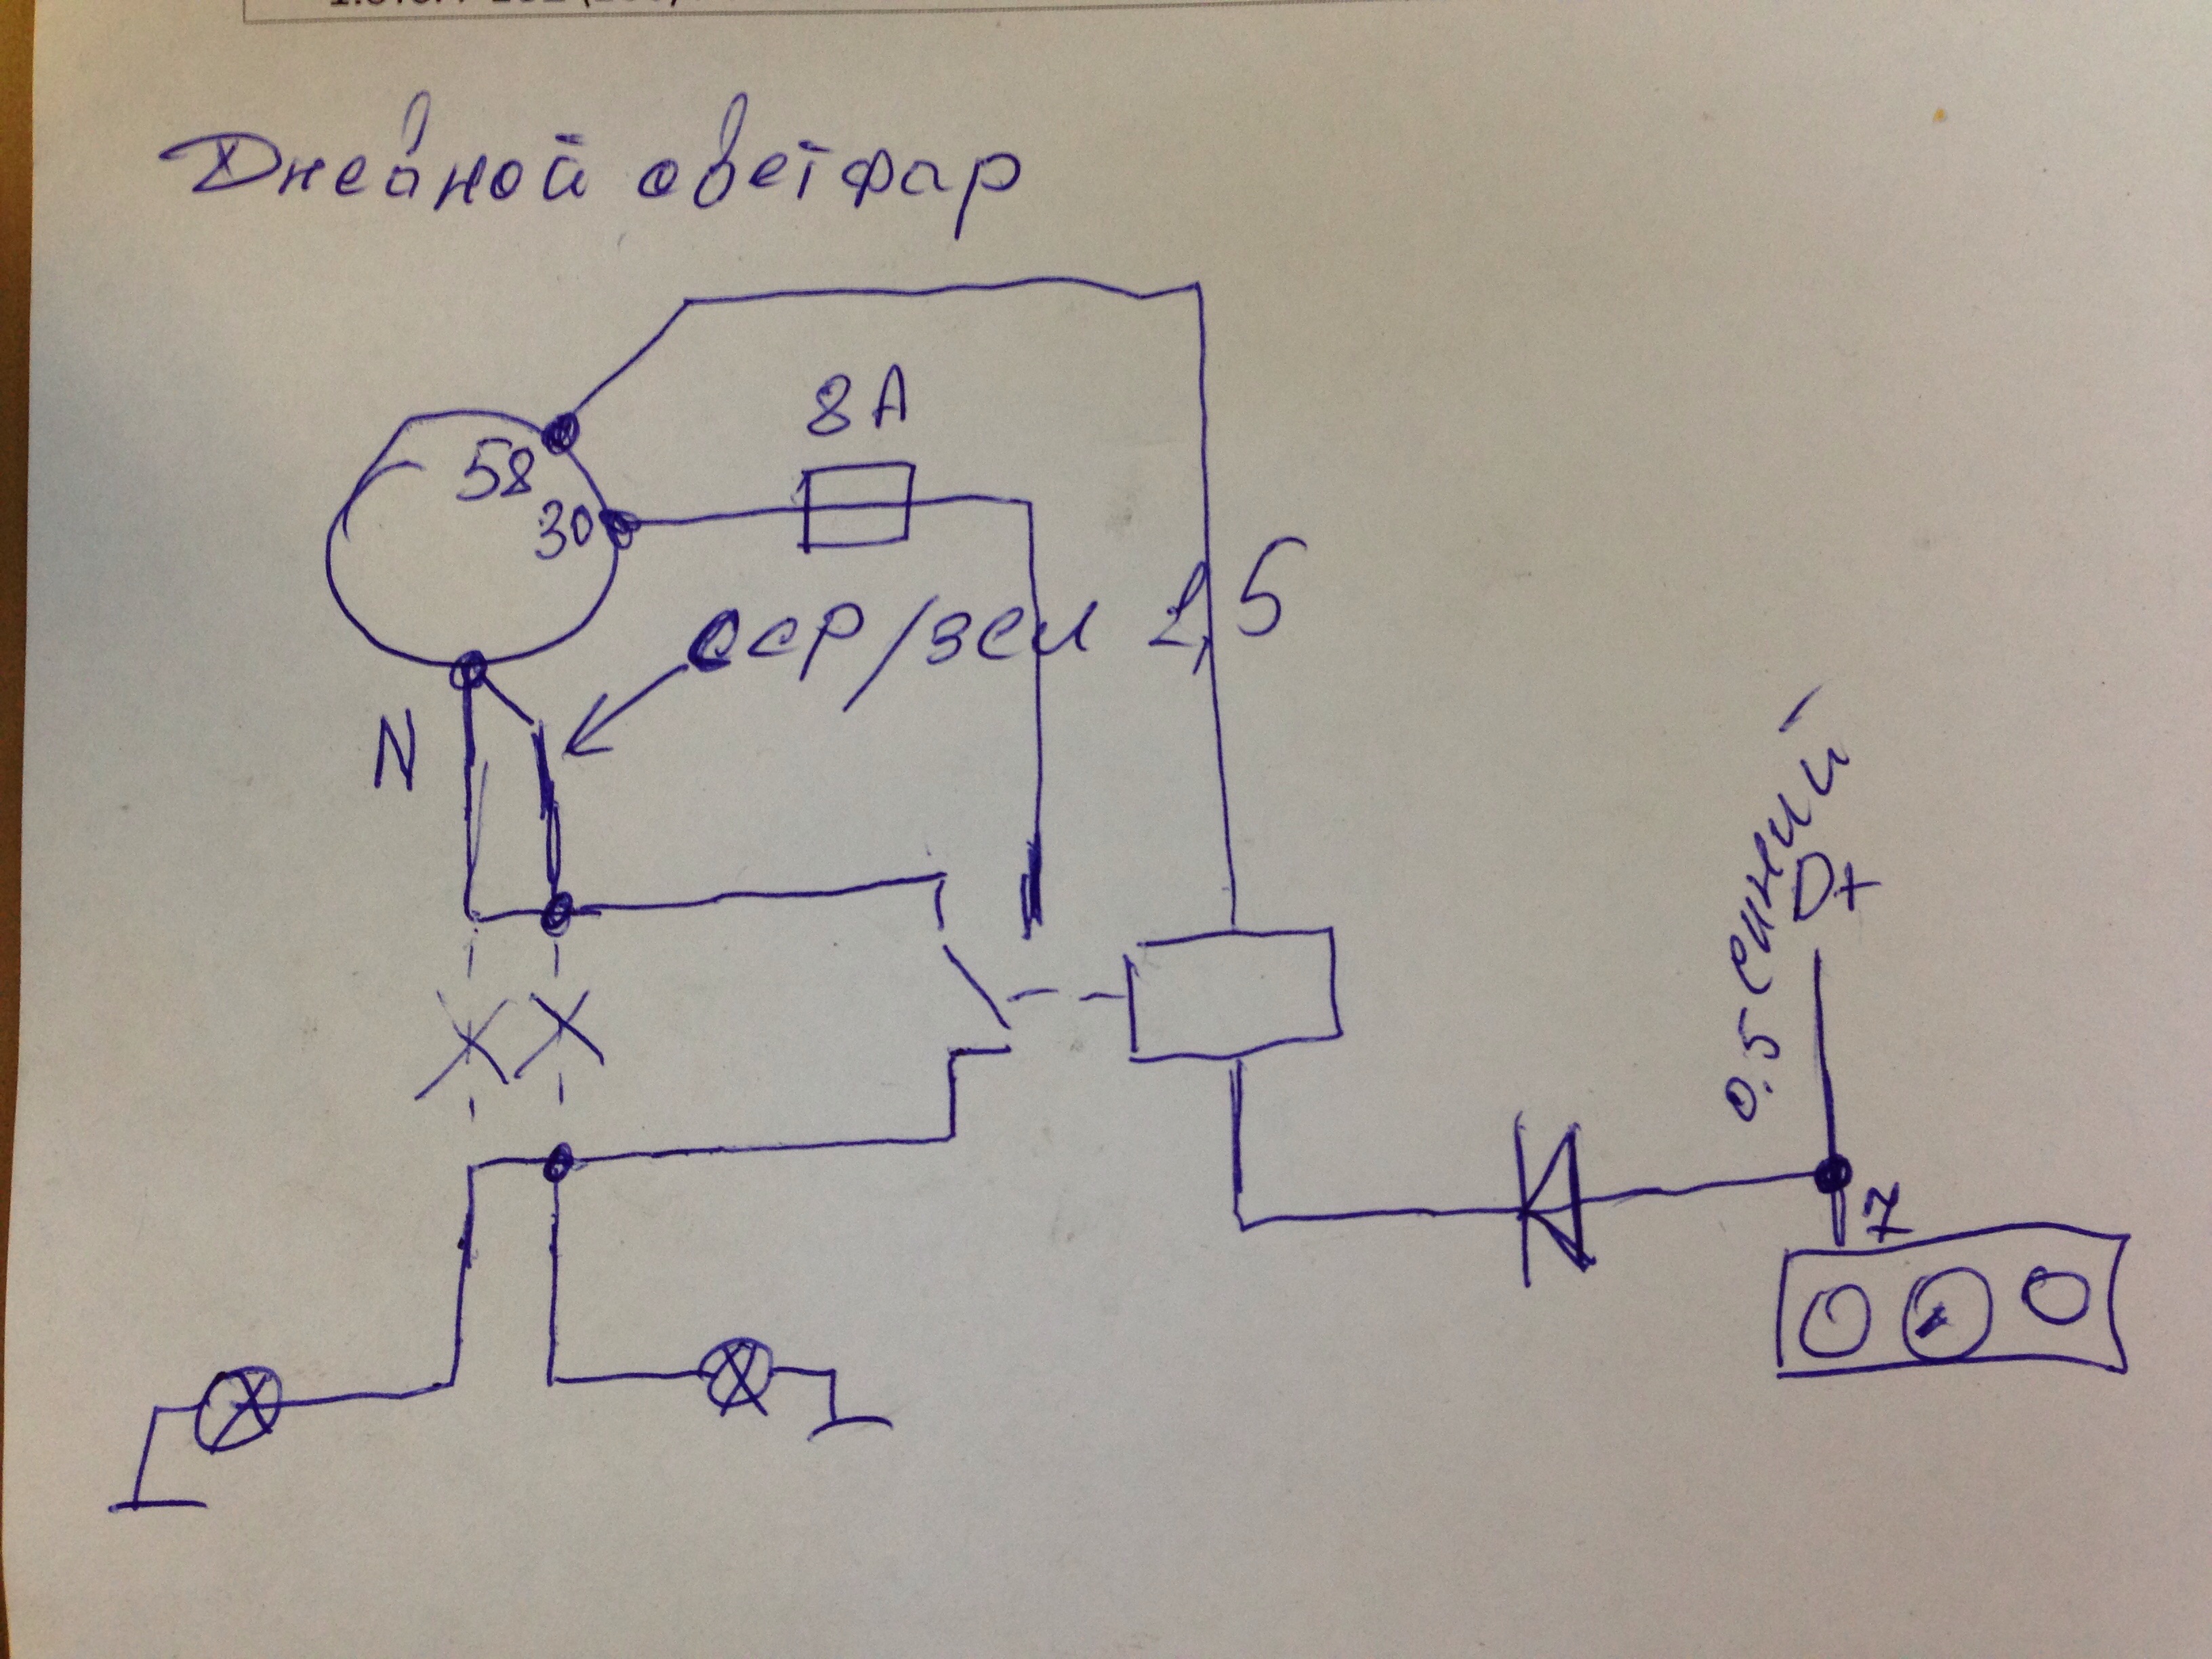 Дневной свет фар
8А
58
30
сер/зел 2,5
N
0.5 синий
D+
7